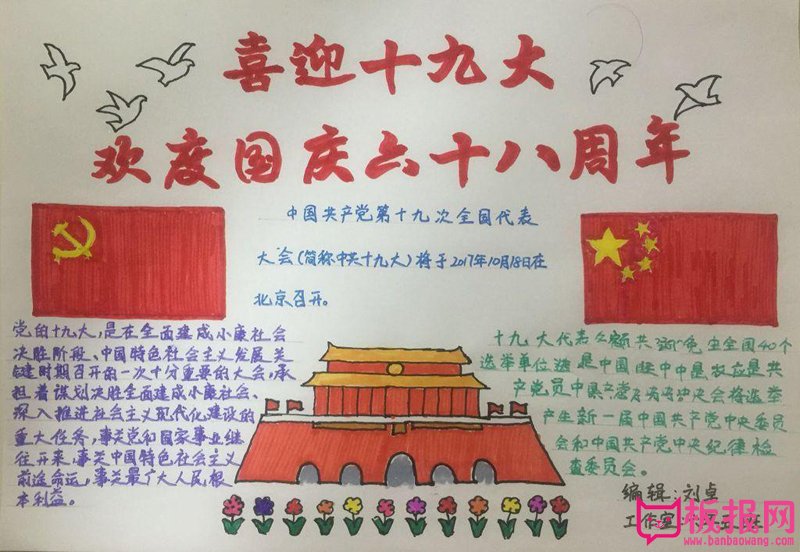 喜迎十九大
欢度国庆六十八周年
中国共产党第十九次全国代表
大会(简称中共十九大)将于2017年10月18日在
北京召开。
党的十九大,是在全面建成小康社会
决胜阶段、中国特色社会主义发展关
键时期召开的一次十分重要的大会,承
担着谋划决胜全面建成小康社会、
深入推进社会主义现代化建设的
重大任务,事关党和国家事业继
往开来,事关中国特色社会主义
前途命运,事关最广大人民根
本利益。
十九大代表名额共
全国40个
选举单位选
共
产党员
会将选举
产生新一届中国共产党中央委员
会和中国共产党中央纪律检
查委员会。
编辑:刘卓
工作室:
板报网
www.banbaowang.com